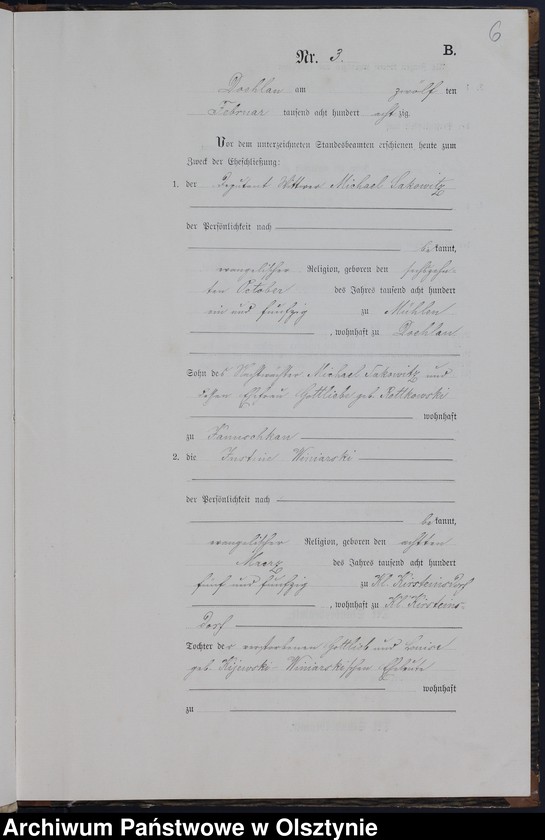 6
Nr. 3. B.
Doehlau am zwölf ten
Februar tausend acht hundert acht zig.
Vor dem unterzeichneten Standesbeamten erschienen heute zum
Zweck der Eheschließung:
1. der Wittwer Michael Sakowitz
der Persönlichkeit nach
be kannt,
evangelischer Religion, geboren den sechszehn-
ten October des Jahres tausend acht hundert
ein und fünfzig zu Mühlen
, wohnhaft zu Doehlau
Sohn des Michael Sakowitz und
dessen Ehefrau Gottliebe geb. Rottkowski
wohnhaft
zu
2. die Justine Winiarski
der Persönlichkeit nach
be kannt,
evangelischer Religion, geboren den achten
Maerz des Jahres tausend acht hundert
fünf und fünfzig zu Kl. Kirsteinsdorf
, wohnhaft zu Kl. Kirsteins-
dorf
Tochter der verstorbenen Gottlieb und Louise
geb. Kijewski Winiarskischen Eheleute
wohnhaft
zu
Archiwum Państwowe w Olsztynie www.genealogiawarchiwach.pl